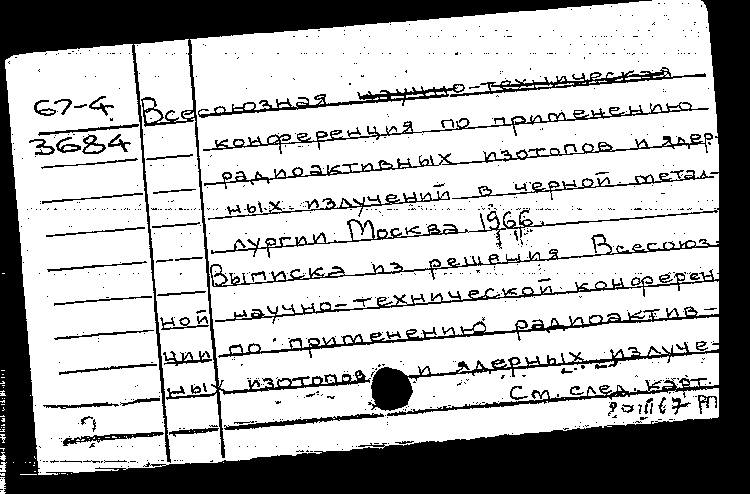 67-4
3684
Всесоюзная научно-техническая
конференция по применению
радиоактивных изотопов и ядер-
ных излучений в черной метал-
лургии. Москва. 1966.
Выписка из решения Всесоюз-
ной научно-технической конферен-
ции по применению радиоактив-
ных изотопов и ядерных излуче-
См. след. карт.